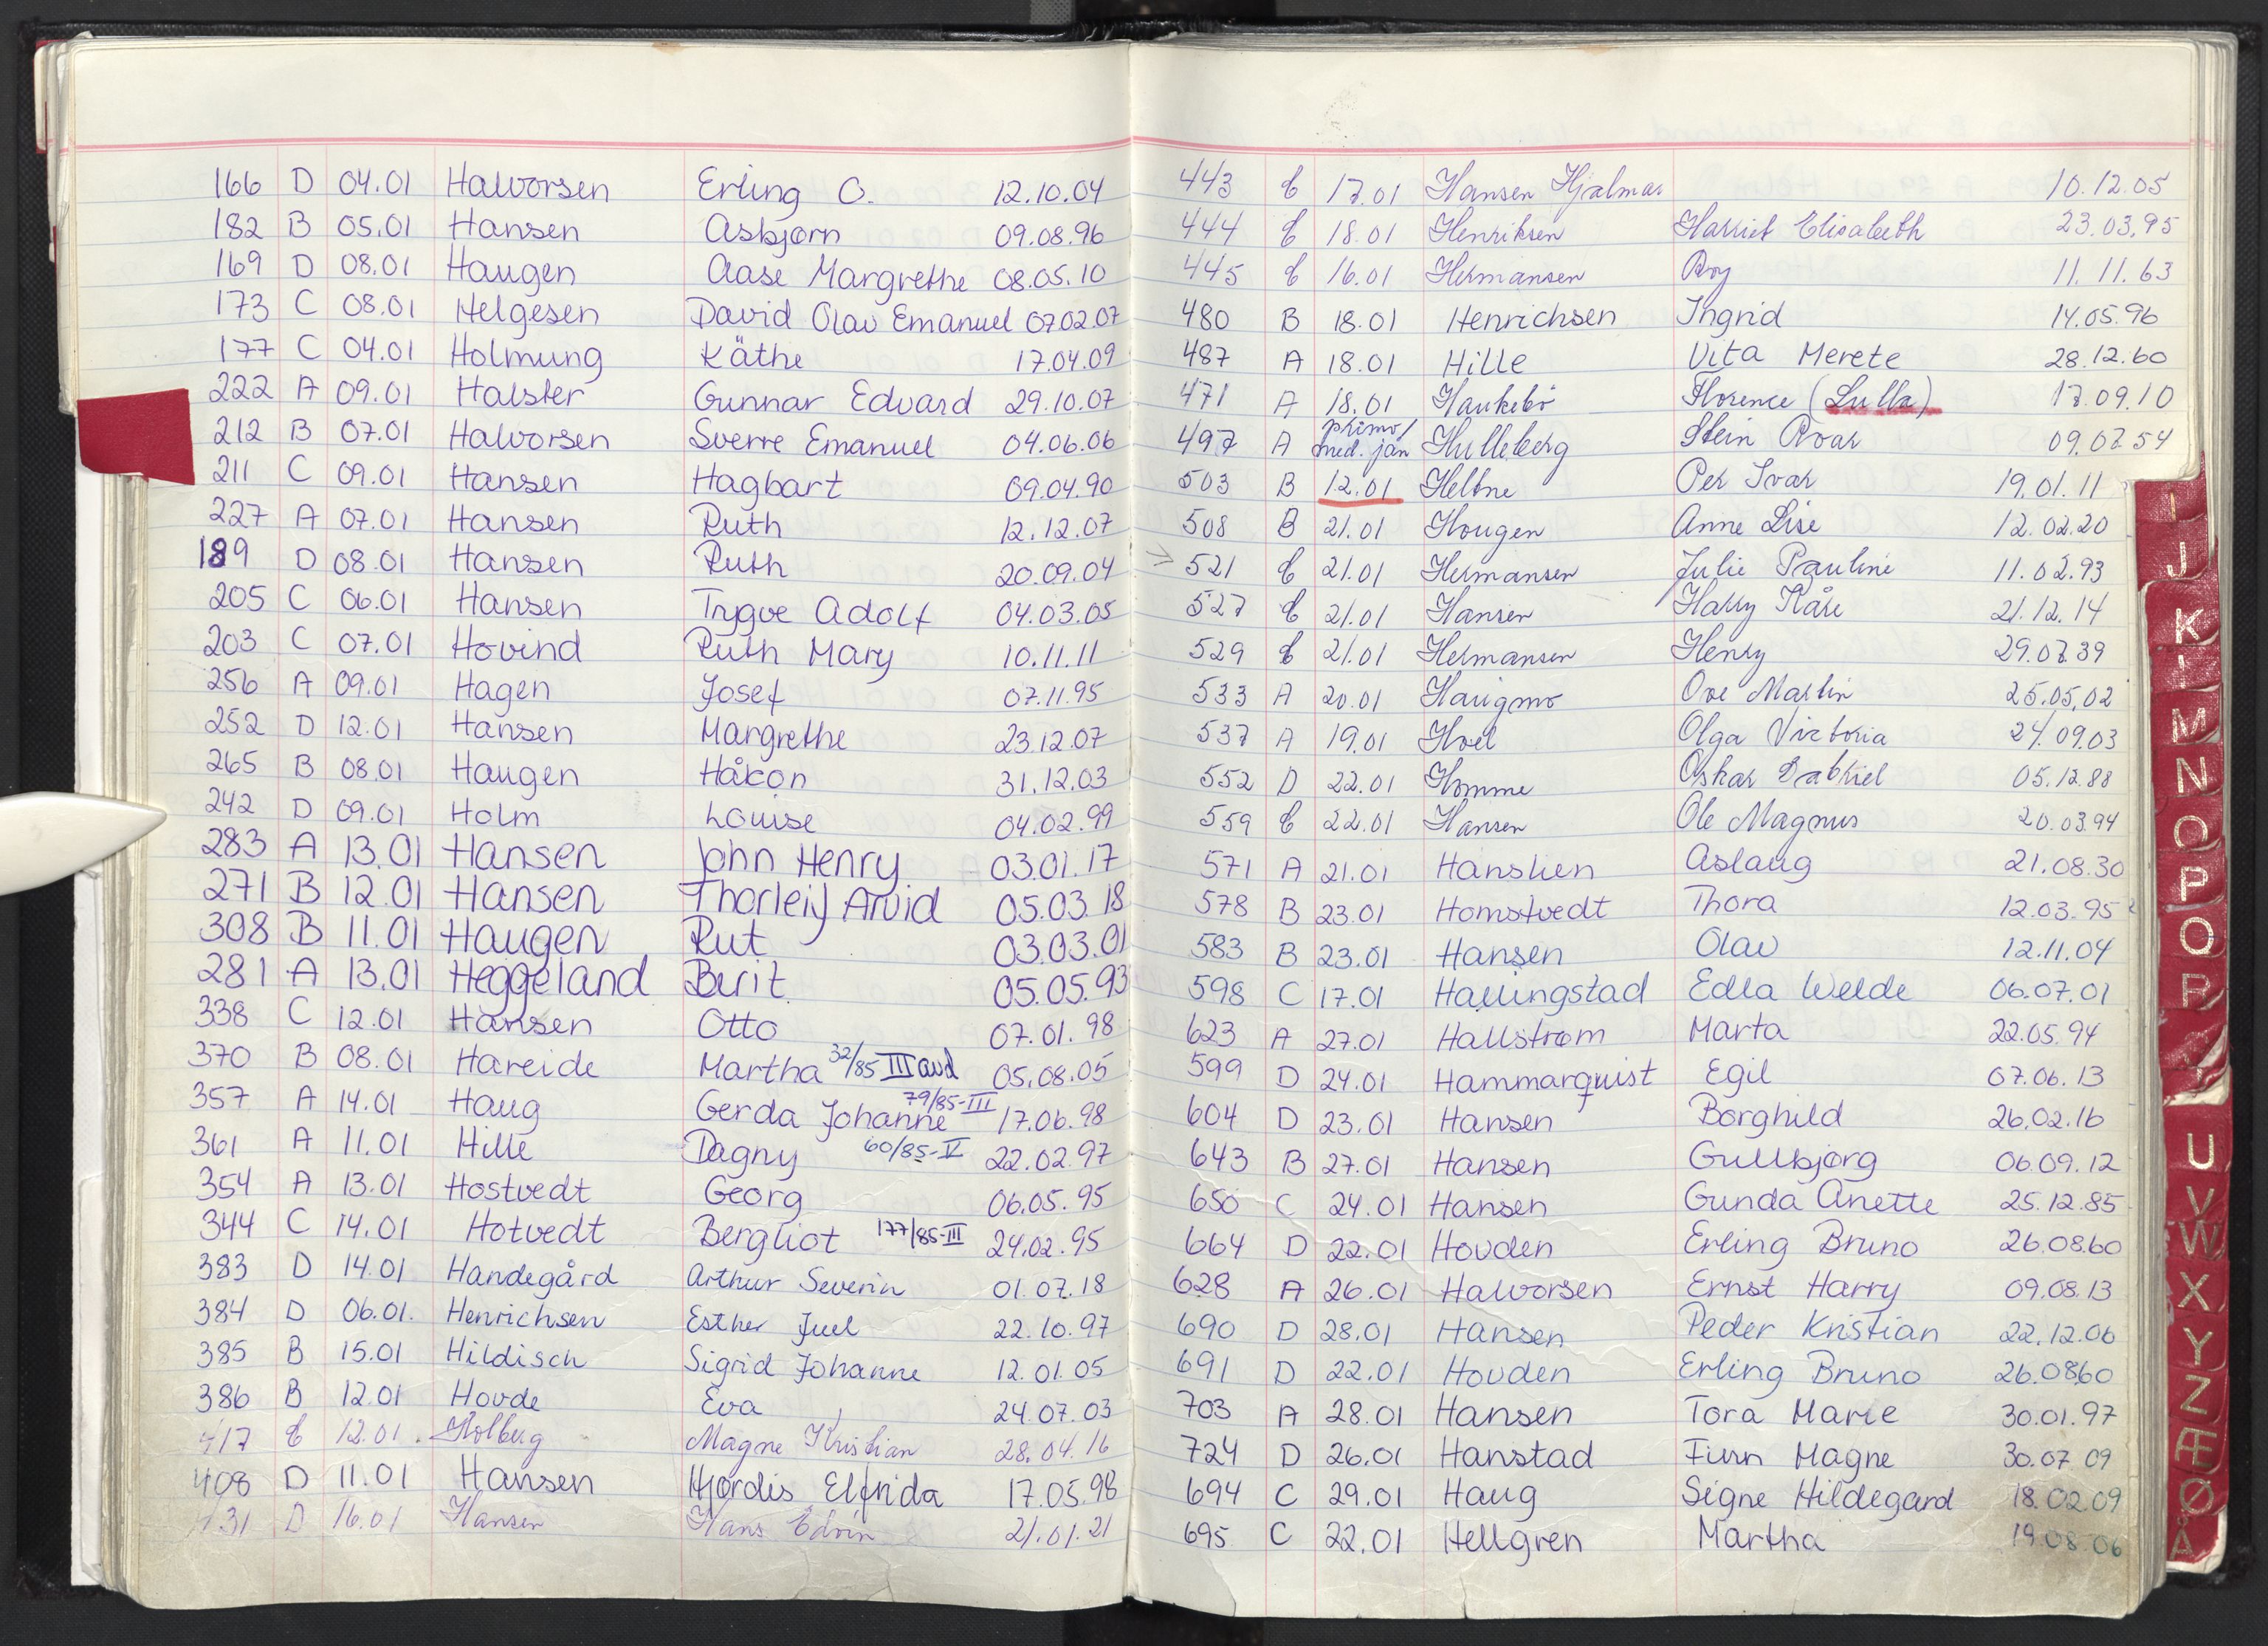 166 D 04.01 Halvorsen Erling O. 12.10.04
182 B 05.01 Hansen Asbjørn 09.08.96
169 D 08.01 Haugen Aase Margrethe 08.05.10
173 C 08.01 Helgesen David Olav Emanuel 07.02.07
177 C 04.01 Holmung Käthe 17.04.09
222 A 09.01 Halster Gunnar Edvard 29.10.07
212 B 07.01 Halvorsen Sverre Emanuel 04.06.06
211 C 09.01 Hansen Hagbart 09.04.90
227 A 07.01 Hansen Ruth 12.12.07
189 D 08.01 Hansen Ruth 20.09.04
205 C 06.01 Hansen Trygve Adolf 04.03.05
203 C 07.01 Hovind Ruth Mary 10.11.11
256 A 09.01 Hagen Josef 07.11.95
252 D 12.01 Hansen Margrethe 23.12.07
265 B 08.01 Haugen Håkon 31.12.03
242 D 09.01 Holm Louise 04.02.99
283 A 13.01 Hansen John Henry 03.01.17
271 B 12.01 Hansen Thorleif Arvid 05.03.18
308 B 11.01 Haugen Rut 03.03.01
281 A 13.01 Heggeland Berit 05.05.93
338 C 12.01 Hansen Otto 07.01.98
370 B 08.01 Hareide Martha 32/85 III avd 05.08.05
357 A 14.01 Haug Gerda Johanne 79/85-III 17.06.98
361 A 11.01 Hille Dagny 60/85-V 22.02.97
354 A 13.01 Hostvedt Georg 06.05.95
344 C 14.01 Hotvedt Bergliot 177/85-III 24.02.95
383 D 14.01 Handegård Arthur Severin 01.07.18
384 D 06.01. Henrichsen Esther Juel 22.10.97
385 B 15.01 Hildisch Sigrid Johanne 12.01.05
386 B 12.01 Hovde Eva 24.07.03
417 C 12.01. Holberg Magne Kristian 28.04.16
408 D 11.01 Hansen Hjørdis Elfrida 17.05.98
431 D 16.01 Hansen Hans Edvin 21.01.21
443 C 17.01 Hansen Hjalmar 10.12.05
444 C 18.01 Henriksen Harriet Elisabeth 23.03.95
445 C 16.01 Hermansen Roy 11.11.63
480 B 18.01 Henrichsen Ingrid 14.05.96
487 A 18.01 Hille Vita Merete 28.12.60
471 A 18.01 Haukebø Florence (Lulla) 17.09.10
497 A primo/ med. jan Hulleberg Stein Roar 09.07.54
503 B 12.01 Heltne Per Ivar 19.01.11
508 B 21.01 Hougen Anne Lise 12.02.20
521 C 21.01 Hermansen Julie Pauline 11.02.93
527 C 21.01 Hansen Harry Kåre 21.12.14
529 C 21.01 Hermansen Henry 29.07.39
533 A 20.01 Haugmo Ove Martin 25.05.02
537 A 19.01 Hoel Olga Victoria 24.09.03
552 D 22.01 Homme Oskar Gabriel 05.12.88
559 C 22.01 Hansen Ole Magnus 20.03.94
571 A 21.01 Hanslien Aslaug 21.08.30
578 B 23.01 Homstvedt Thora 12.03.95
583 B 23.01 Hansen Olav 12.11.04
598 C 17.01 Hallingstad Edla Welde 06.07.01
623 A 27.01 Hallstrøm Marta 22.05.94
599 D 24.01 Hammarquist Egil 07.06.13
604 D 23.01 Hansen Borghild 26.02.16
643 B 27.01 Hansen Gullbjørg 06.09.12
650 C 24.01 Hansen Gunda Anette 25.12.85
664 D 22.01 Houden Erling Bruno 26.08.60
628 A 26.01 Halvorsen Ernst Harry 09.08.13
690 D 28.01 Hansen Peder Kristian 22.12.06
691 D 22.01 Houden Erling Bruno 26.08.60
703 A 28.01 Hansen Tora Marie 30.01.97
724 D 26.01 Hanstad Finn Magne 30.07.09
694 C 29.01 Haug Signe Hildegard 18.02.09
695 C 22.01 Hellgren Martha 19.08.06
I
J
K
M
N
O
P
Q
R
U
V
W
X
Y
Z
Æ
Ø
Å